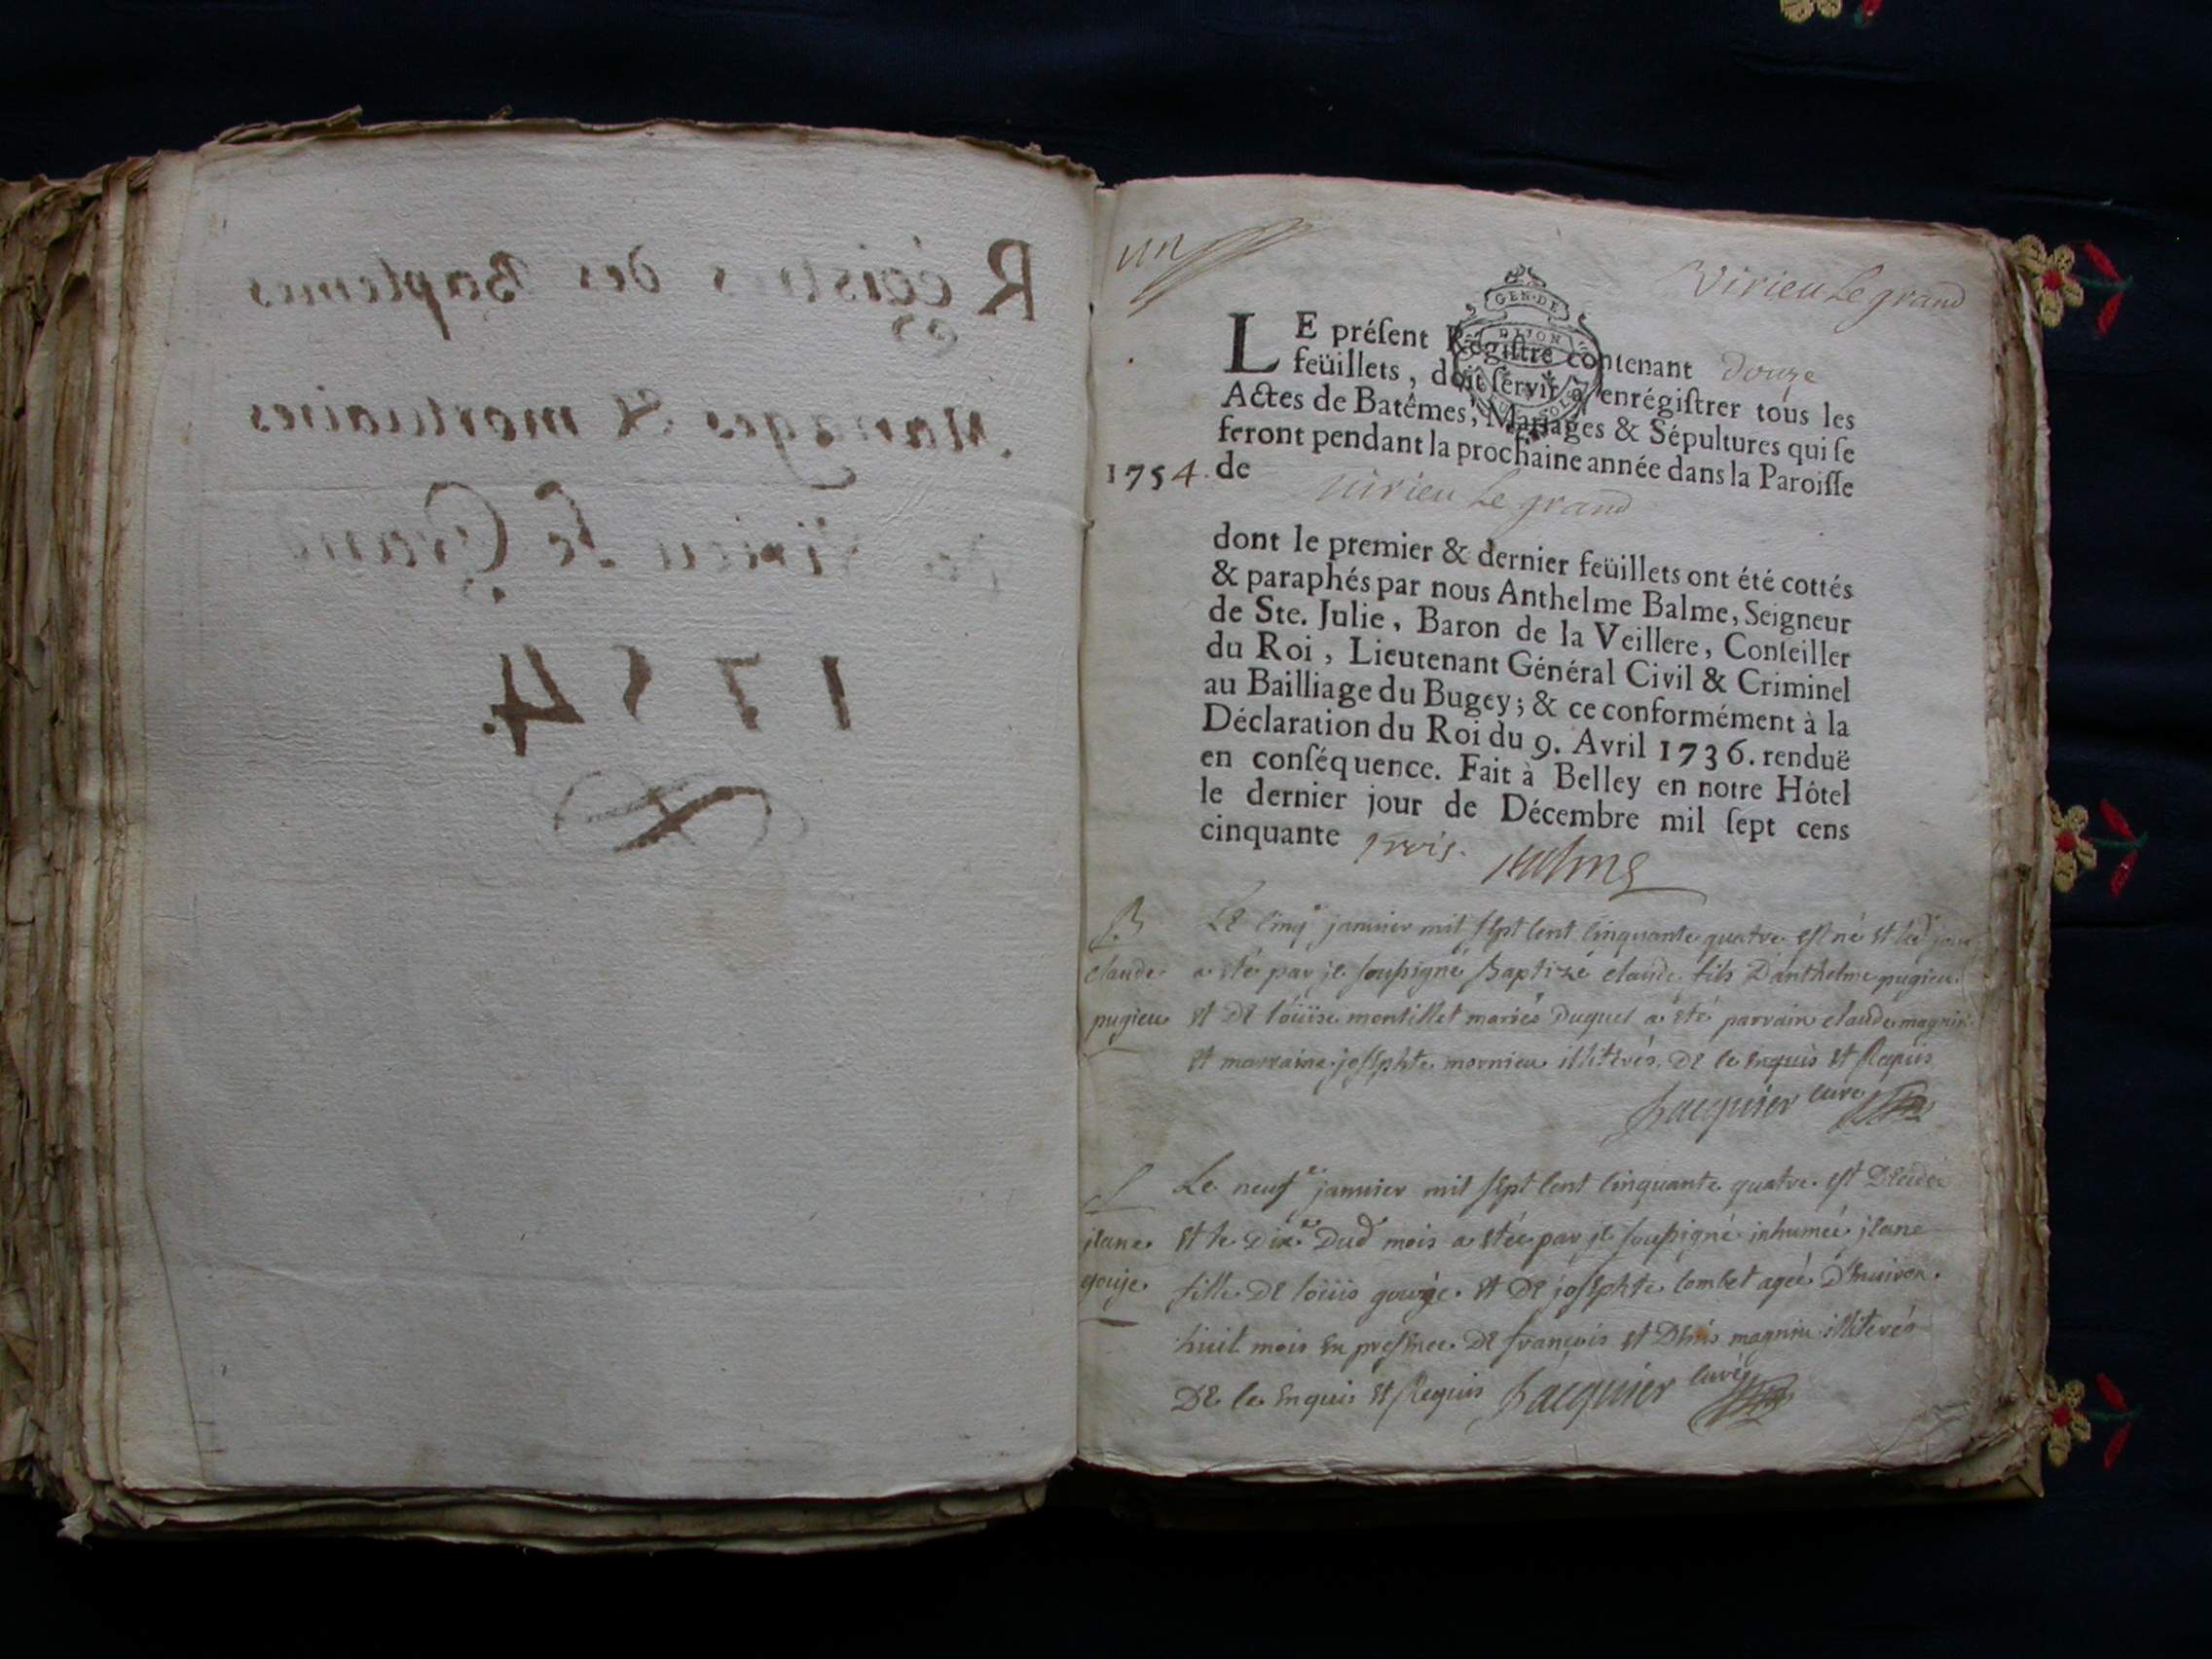 Régistres des Baptemes
Mariages & mortuaires
de Virieu le Grand
1754.
un
Virieu Le grand
GEN. DE
DIJON
LE préſent Régiſtre contenant douze
feüillets, doit ſervir à enrégiſtrer tous les
Actes de Batêmes, Mariages & Sépultures qui ſe
feront pendant la prochaine année dans la Paroiſſe
1754. de virieu Le grand
dont le premier & dernier feüillets ont été cottés
& paraphés par nous Anthelme Balme, Seigneur
de Ste. Julie, Baron de la Veillere, Conſeiller
du Roi, Lieutenant Général Civil & Criminel
au Bailliage du Bugey; & ce conformément à la
Déclaration du Roi du 9. Avril 1736. renduë
en conſéquence. Fait à Belley en notre Hôtel
le dernier jour de Décembre mil ſept cens
cinquante trois. Balme
B
claude
pugieu
Le cinqe janvier mil sept cent cinquante quatre est né et led jour
a été par je soussigné Baptizé claude fils D'anthelme pugieu
et De loüise montillet mariés Duquel a été parrain claude magnin
et marraine josephte mornieu illiterés De ce enquis et Requis
Jacquier curé
S
jeane
gouje
Le neufe janvier mil sept cent cinquante quatre est Decedeé
et le Dixe Dud mois a etée par je soussigné inhumeé jeane
fille De loüis gouje et De josephte combet ageé D'enuiron
huit mois en presence De françois et Denis magnin illiterés
De ce enquis et Requis Jacquier curé